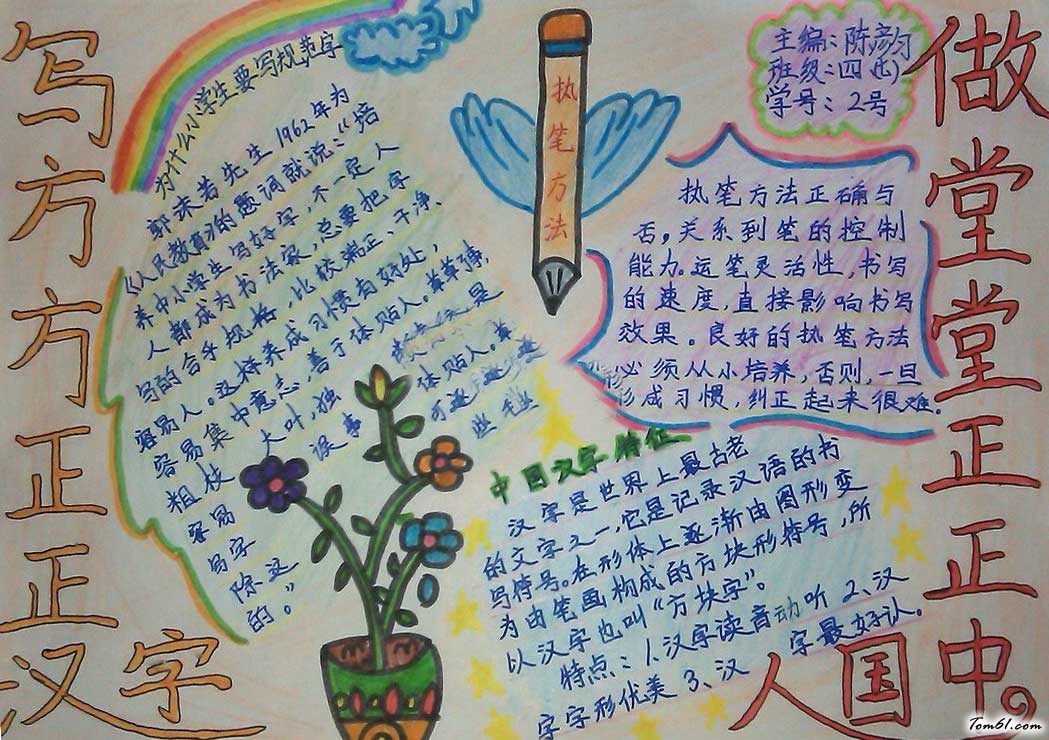 写方方正正汉字
做堂堂正正中国人
为什么小学生要写规范字
郭沫若先生1962年为
《人民教育》的题词就说:“培
养中小学生写好字,不一定人
人都成为书法家,总要把字
写的合乎规格,比较端正、干净、
容易人。这样养成习惯有好处,
容易集中意志,善于体贴人。草草了事,
粗枝大叶,独
容易误事
写字
除这
的。”
执笔方法
主编:陈彦匀
班级:四(七)
学号:2号
执笔方法正确与
否,关系到笔的控制
能力。运笔灵活性,书写
的速度,直接影响书写
效果。良好的执笔方法
必须从小培养,否则,一旦
形成习惯,纠正起来很难。
中国汉字特征
汉字是世界上最古老
的文字之一,它是记录汉语的书
写符号。在形体上逐渐由图形变
为由笔画构成的方块形符号,所
以汉字也叫“方块字”。
特点:1.汉字读音动听 2、汉
字字形优美 3、汉字最好认。
Tom61.com